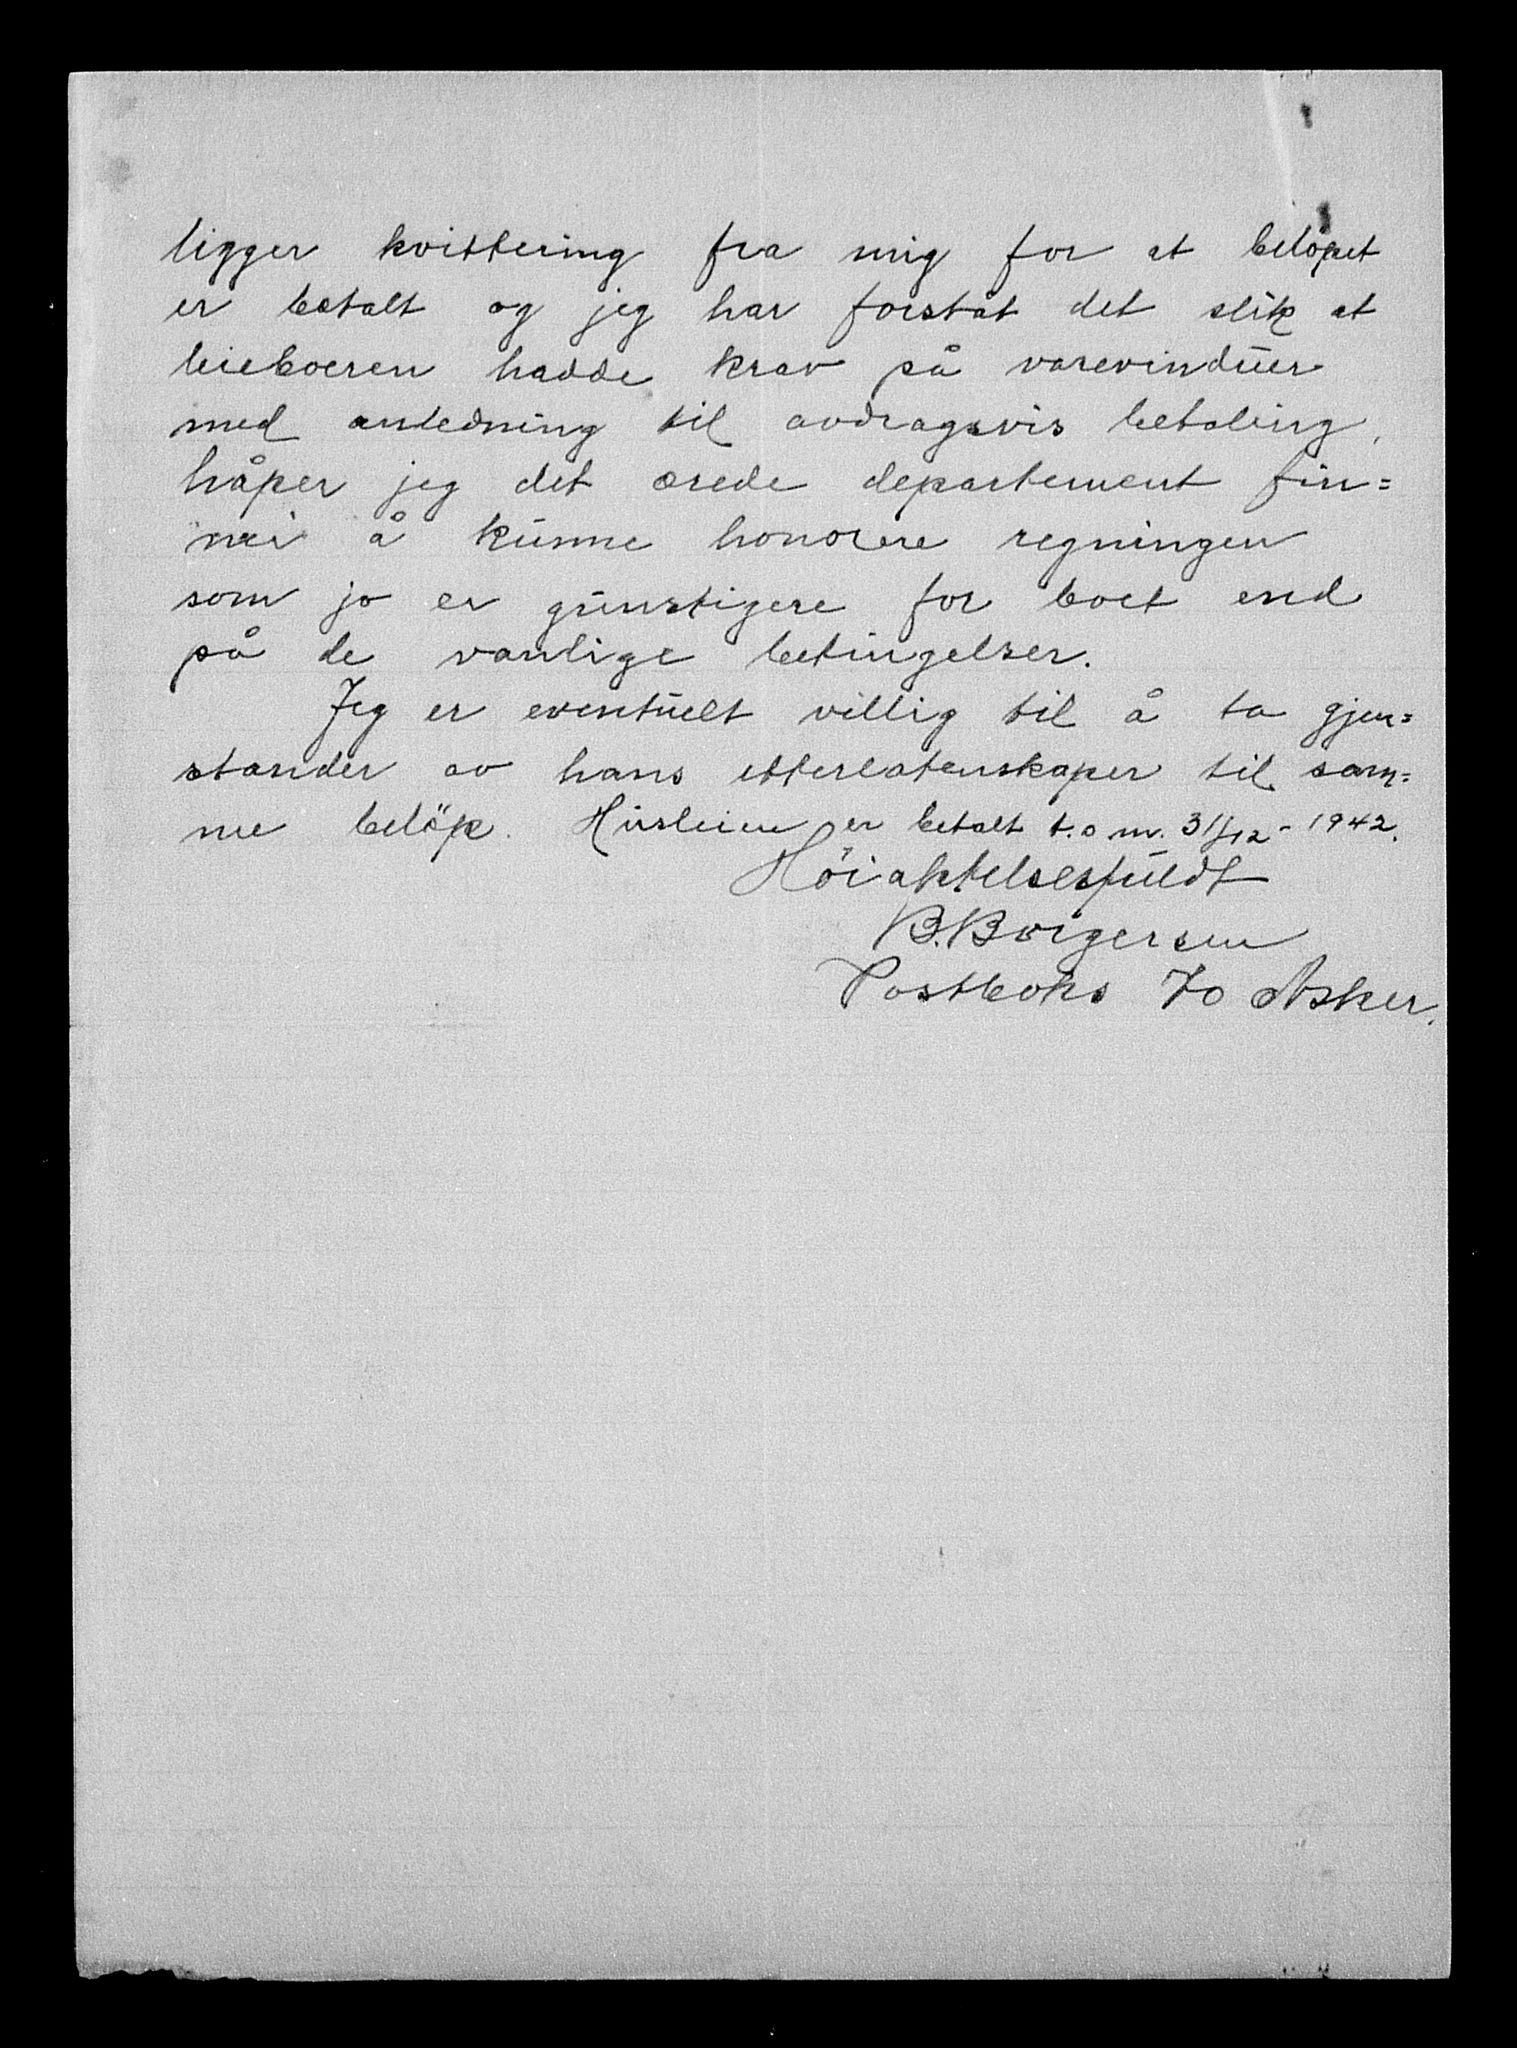 ligger kvittering fra mig for at beløpet
er betalt og jeg har forståt det slik at
leieboeren hadde krav på varevinduer
med anledning til avdragsvis betaling,
håper jeg det ærede departement fin=
ner å kunne honorere regningen
som jo er gunstigere for boet end
på de vanlige betingelser.
Jeg er eventuelt villig til å ta gjen=
stander av hans etterlatenskaper til sam=
me beløp. Husleien er betalt t.o m. 31/12 - 1942.
Höiaktelsesfuldt
B. Borgersen
Postboks 70 Asker.